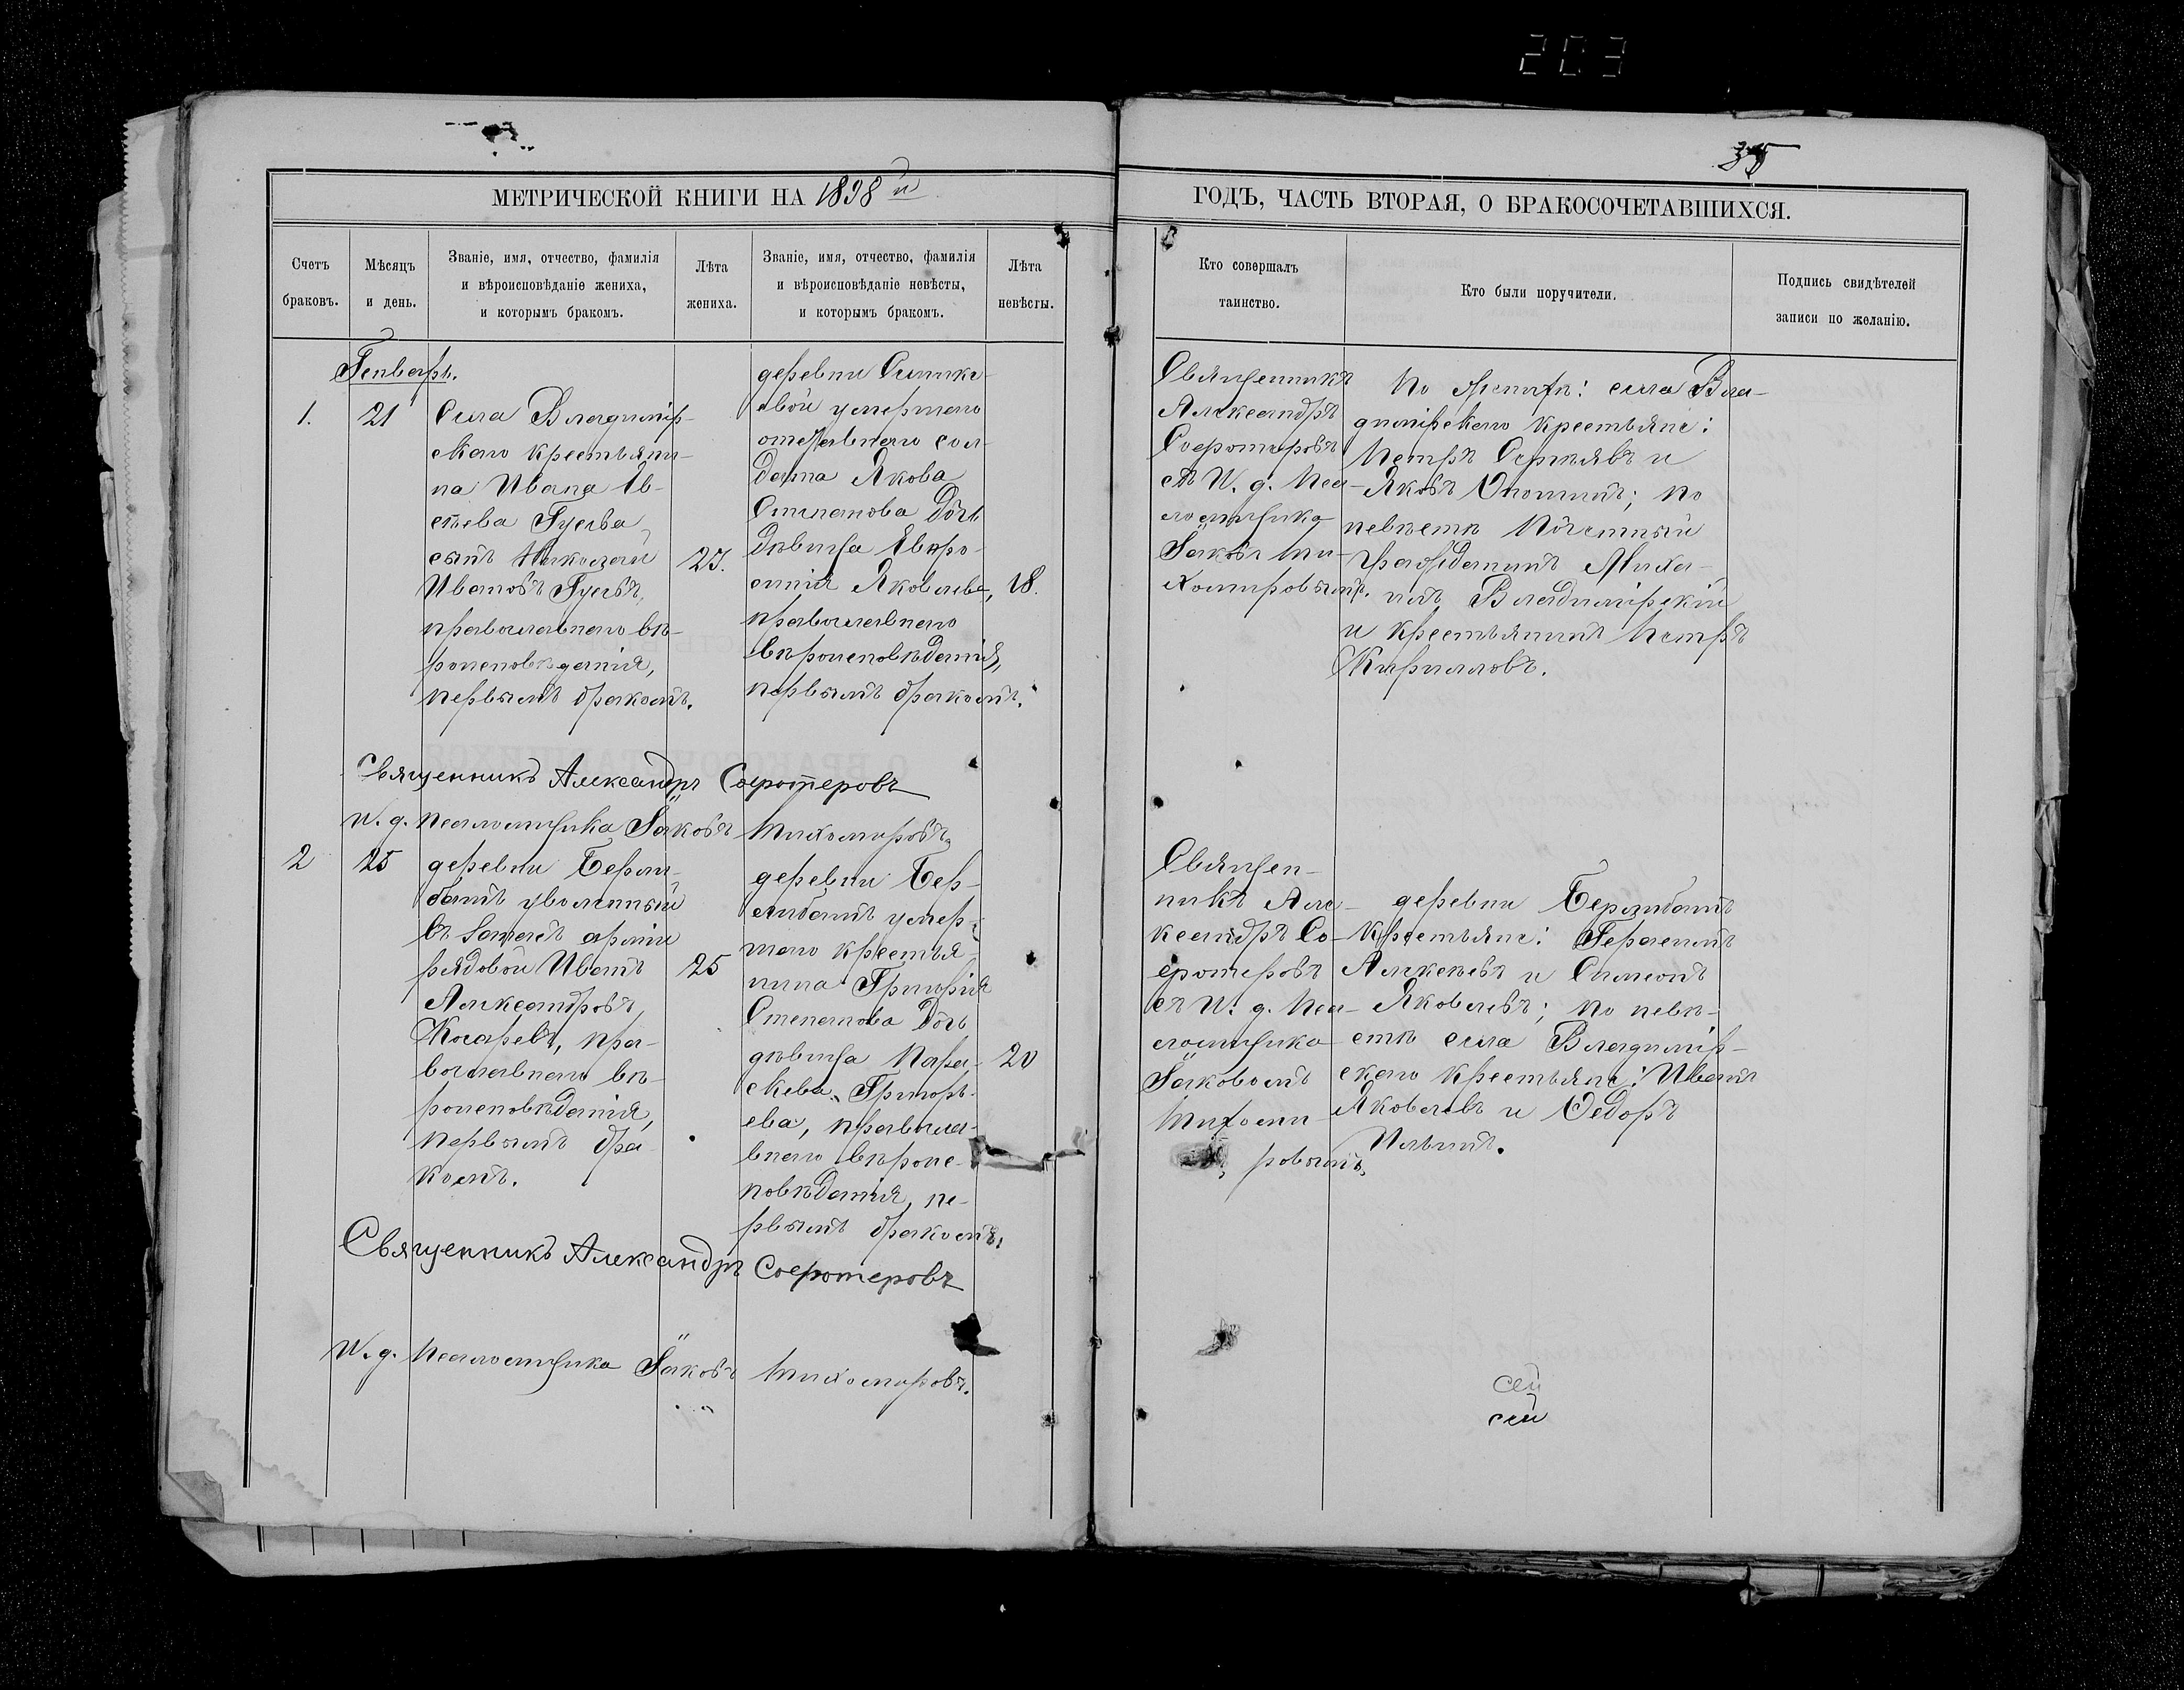 203
35
МЕТРИЧЕСКОЙ КНИГИ НА 1898й
ГОДЪ, ЧАСТЬ ВТОРАЯ, О БРАКОСОЧЕТАВШИХСЯ.
Счетъ
браковъ.
Мѣсяцъ
и день.
Званіе, имя, отчество, фамилія
и вѣроисповѣданіе жениха,
и которымъ бракомъ.
Лѣта
жениха.
Званіе, имя, отчество, фамилія
и вѣроисповѣданіе невѣсты,
и которымъ бракомъ.
Лѣта
невѣсты.
Кто совершалъ
таинство.
Кто были поручители.
Подпись свидѣтелей
записи по желанію.
Генварь.
1.
21
Села Владимір-
скаго крестьяни-
на Ивана Ев-
сѣева Гусева
сынъ Николай
Ивановъ Гусевъ,
православнаго вѣ-
роисповѣданія,
первымъ бракомъ.
23.
деревни
умершаго
отставнаго сол-
дата Якова
Степанова дочь
дѣвица Евфро-
синія Яковлева,
православнаго
вѣроисповѣданія,
первымъ бракомъ.
18.
Священникъ
Александръ
Сосротеровъ
съ И. д. Пса-
ломщика
Іаковъ Ти-
хомировымъ.
По женихѣ: села Вла-
димірскаго крестьяне:
Петръ Сергѣевъ и
Яковъ; по
невѣстѣ Почетный
гражданинъ Миха-
илъ Владимірскій
и крестьянинъ Петръ
Кирилловъ.
Священникъ Александръ Сосротеровъ
И. д. Псаломщика Іаковъ Тихомировъ.
2
25
деревни Берли-
банъ уволенный
въ запасъ арміи
рядовой Иванъ
Александровъ
Косаревъ, пра-
вославнаго вѣ-
роисповѣданія,
первымъ бра-
комъ.
25
деревни Бер-
либанъ умер-
шаго крестья-
нина Григорія
Степанова дочь
дѣвица Пара-
скева Григорь-
ева, правосла-
внаго вѣроис-
повѣданія, пе-
рвымъ бракомъ.
20
Священ-
никъ Але-
ксандръ Со-
сротеровъ
съ И. д. Пса-
ломщика
Іаковомъ
Тихоми-
ровымъ.
деревни Берлибанъ
Крестьяне: Герасимъ
Алексѣевъ и Симеонъ
Яковлевъ; по невѣ-
стѣ села Владимір-
скаго крестьяне: Иванъ
Яковлевъ и Ѳедоръ
Ильинъ.
Священникъ Александръ Сосротеровъ
И. д. Псаломщика Іаковъ Тихомировъ.
сей
сей